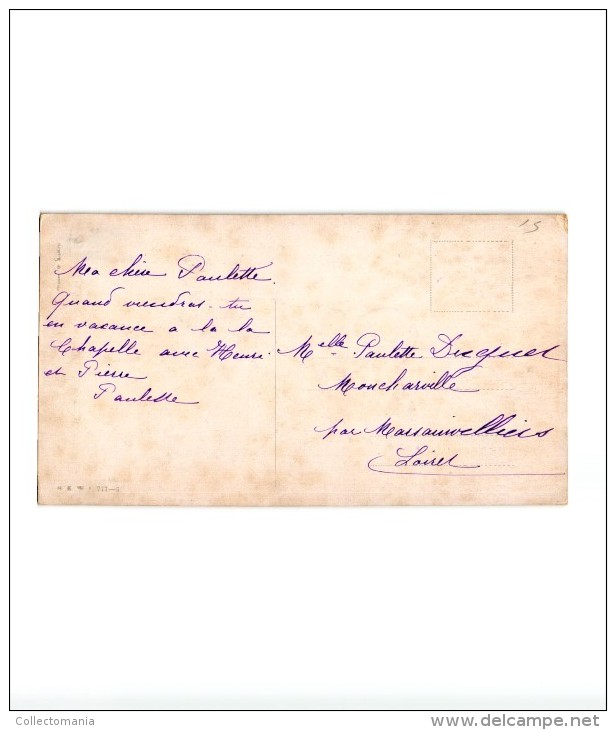 15
Ma chère Paulette.
Quand viendras-tu
en vacance a la la
Chapelle avec Henri
et Pierre
Paulette
Melle Paulette Duquet
Moncharville
par Marsainvilliers
Loiret
Collectomania
www.delcampe.net